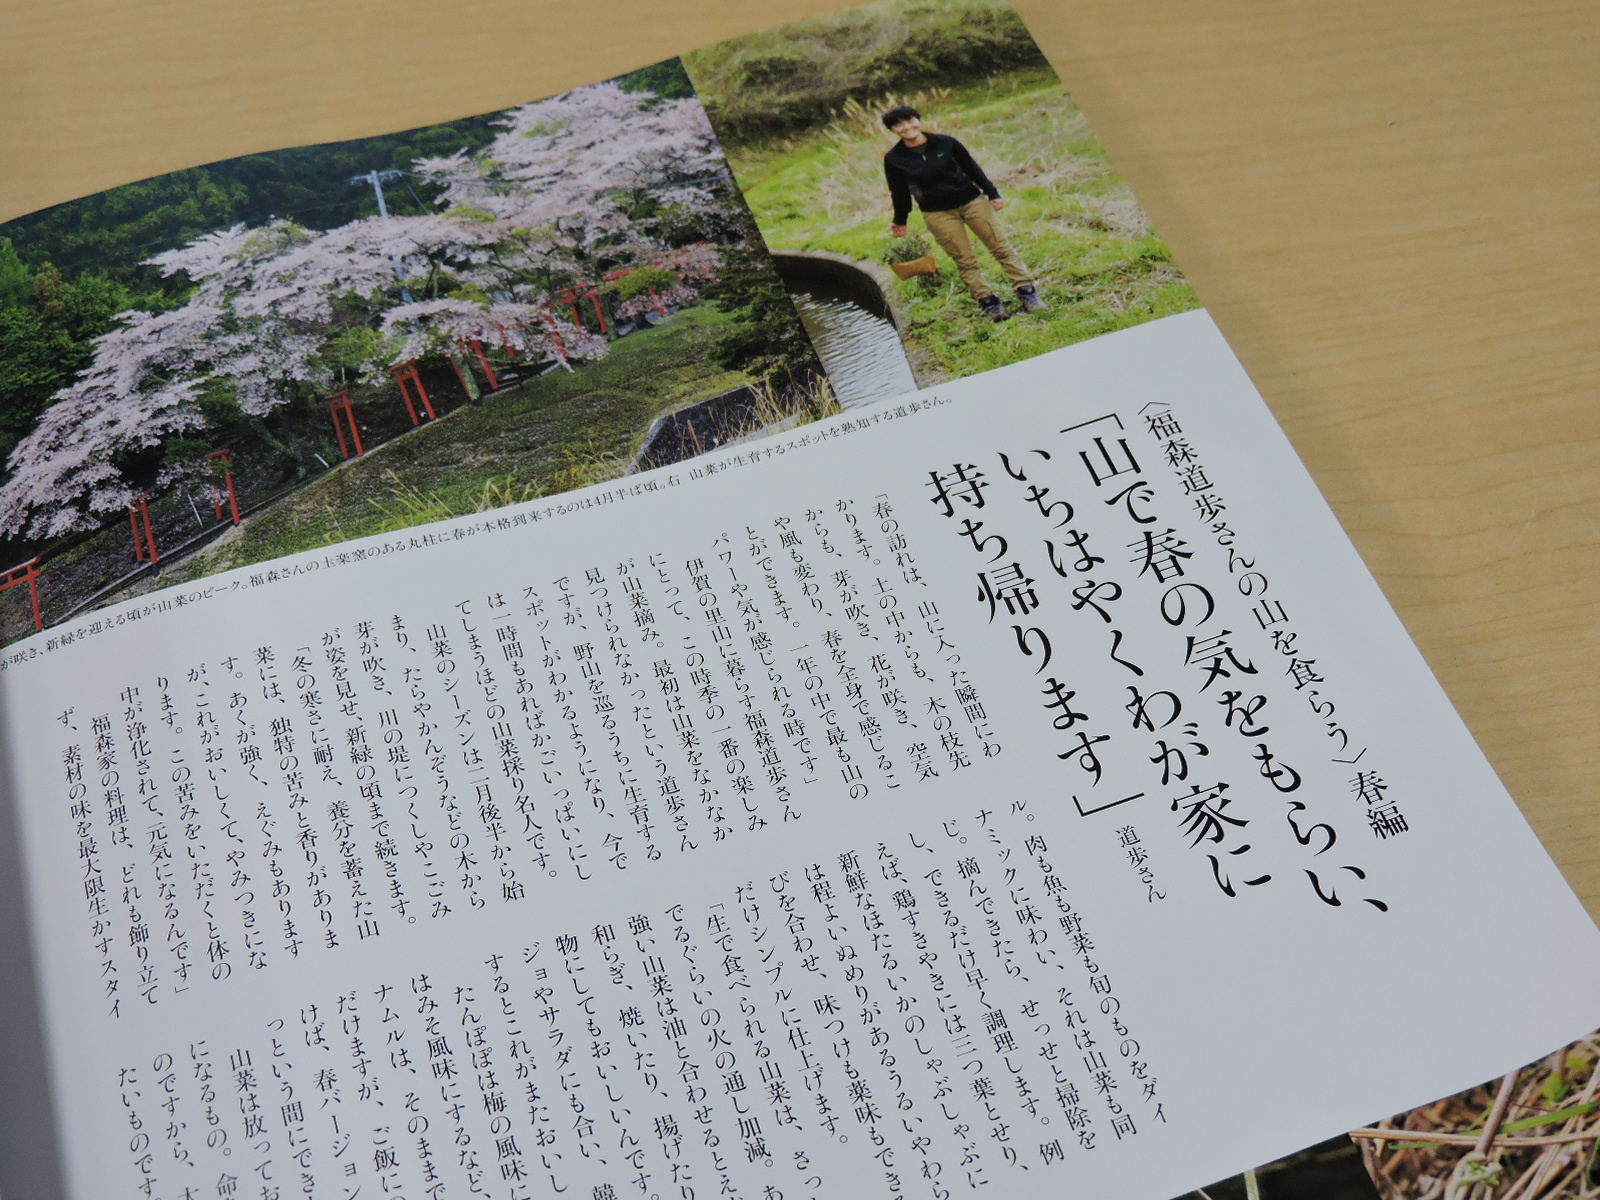 〈福森道歩さんの山を食らう〉春編
「山で春の気をもらい、
いちはやくわが家に
持ち帰ります」
道歩さん
「春の訪れは、山に入った瞬間にわ
かります。土の中からも、木の枝先
からも、芽が吹き、花が咲き、空気
や風も変わり、春を全身で感じるこ
とができます。一年の中で最も山の
パワーや気が感じられる時です」
伊賀の里山に暮らす福森道歩さん
にとって、この時季の一番の楽しみ
が山菜摘み。最初は山菜をなかなか
見つけられなかったという道歩さん
ですが、野山を巡るうちに生育する
スポットがわかるようになり、今で
は一時間もあればかごいっぱいにし
てしまうほどの山菜採り名人です。
山菜のシーズンは二月後半から始
まり、たらやかんぞうなどの木から
芽が吹き、川の堤につくしやこごみ
が姿を見せ、新緑の頃まで続きます。
「冬の寒さに耐え、養分を蓄えた山
菜には、独特の苦みと香りがありま
す。あくが強く、えぐみもあります
が、これがおいしくて、やみつきにな
ります。この苦みをいただくと体の
中が浄化されて、元気になるんです」
福森家の料理は、どれも飾り立て
ず、素材の味を最大限生かすスタイ
ル。肉も魚も野菜も旬のものをダイ
ナミックに味わい、それは山菜も同
じ。摘んできたら、せっせと掃除を
し、できるだけ早く調理します。例
えば、鶏すきやきには三つ葉とせり、
新鮮なほたるいかのしゃぶしゃぶに
は程よいぬめりがあるうるいやわら
びを合わせ、味つけも薬味もできる
だけシンプルに仕上げます。
「生で食べられる山菜は、さっ
でるぐらいの火の通し加減。あ
強い山菜は油と合わせるとえ
和らぎ、焼いたり、揚げたり
物にしてもおいしいんです。
ジョやサラダにも合い、韓
するとこれがまたおいし
たんぽぽは梅の風味に
はみそ風味にするなど、
ナムルは、そのままで
だけますが、ご飯に
けば、春バージョン
っという間にでき
山菜は放ってお
になるもの。命
のですから、大
たいものです。
が咲き、新緑を迎える頃が山菜のピーク。福森さんの土楽窯のある丸柱に春が本格到来するのは4月半ば頃。右 山菜が生育するスポットを熟知する道歩さん。